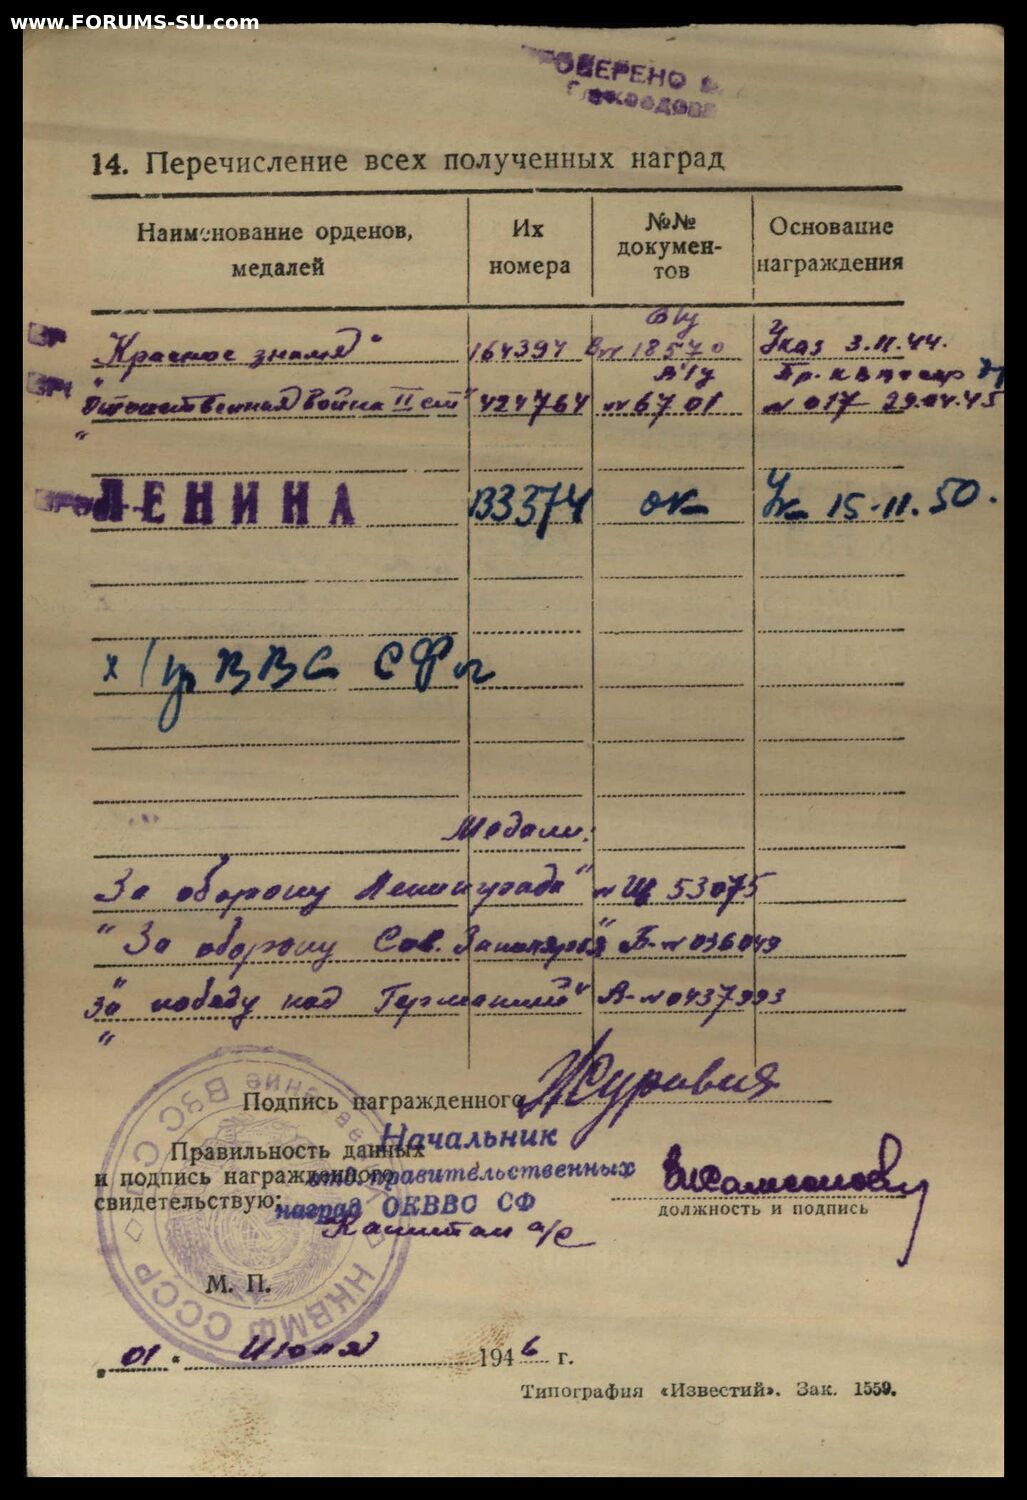 www.FORUMS-SU.com
14. Перечисление всех полученных наград
Наименование орденов, медалей
Их номера
№№ документов
Основание награждения
"Красное знамя" 164394 № 18570 Указ 3.11.44.
"Отечественная война II ст" 424764 № 6701 № 017 29.04.45
ЛЕНИНА 133374 ок Ук 15-11.50.
ВВС
Медали:
"За оборону Ленинграда" № Щ 53075
"За оборону Сов. Заполярья" Б-№036049
"За победу над Германией" А-№0437993
Подпись награжденного
Начальник
Правильность данных
и подпись награжденного
правительственных
свидетельствую:
наград ОКВВС СФ
Капитан а/с
должность и подпись
НКВМФ СССР
М. П.
"01" Июля 1946 г.
Типография «Известий». Зак. 1559.